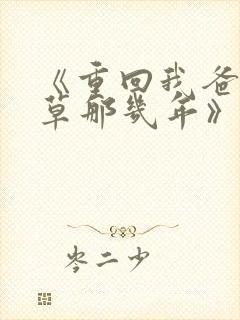 《重回我爸
草那几年》
岑二少